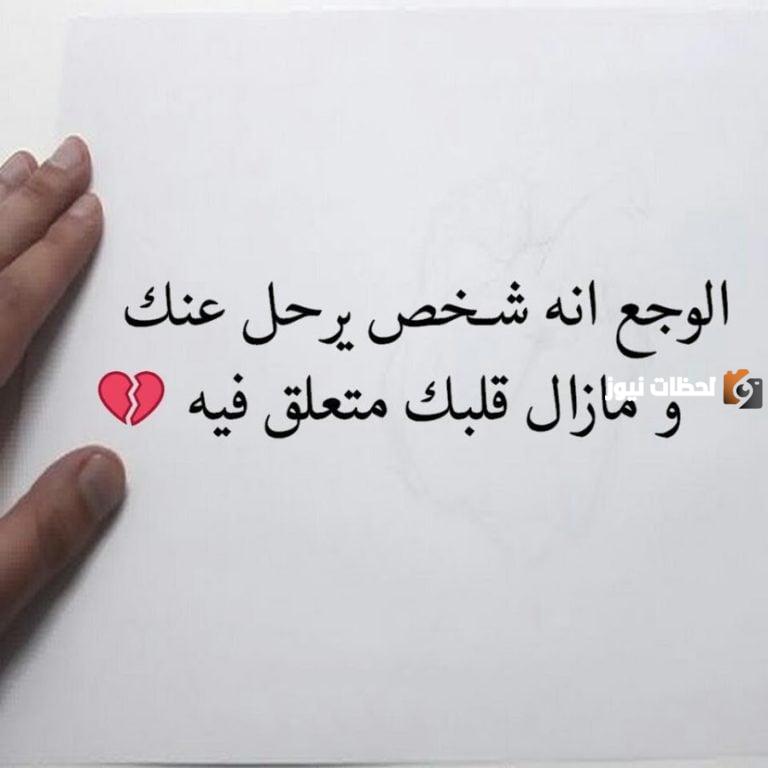 الوجع انه شخص يرحل عنك
و مازال قلبك متعلق فيه 💔
لحظات نيوز